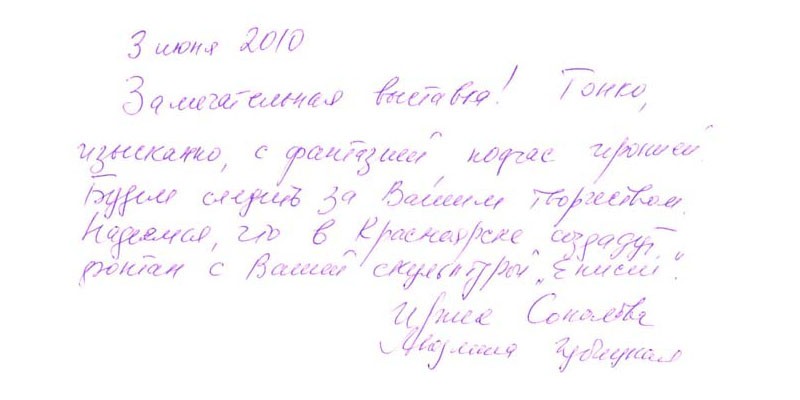 3 июня 2010
Замечательная выставка! Тонко,
изысканно, с фантазией, подчас иронией.
Будем следить за Вашим творчеством.
Надеемся, что в Красноярске создадут
фонтан с Вашей скульптурой „Енисей".
Ирина Соколова
Людмила